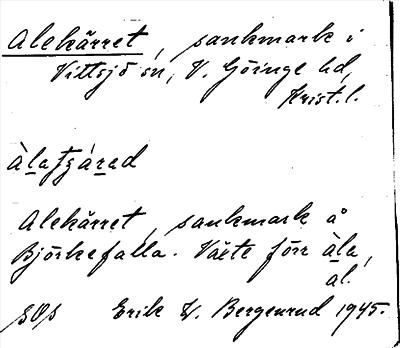 Alekärret, sankmark i
Vittsjö sn, V. Göinge hd,
Krist. l.
Alekärret, sankmark å
Björkefalla. Växte förr àla,
al.
Erik W. Bergenrud 1945.